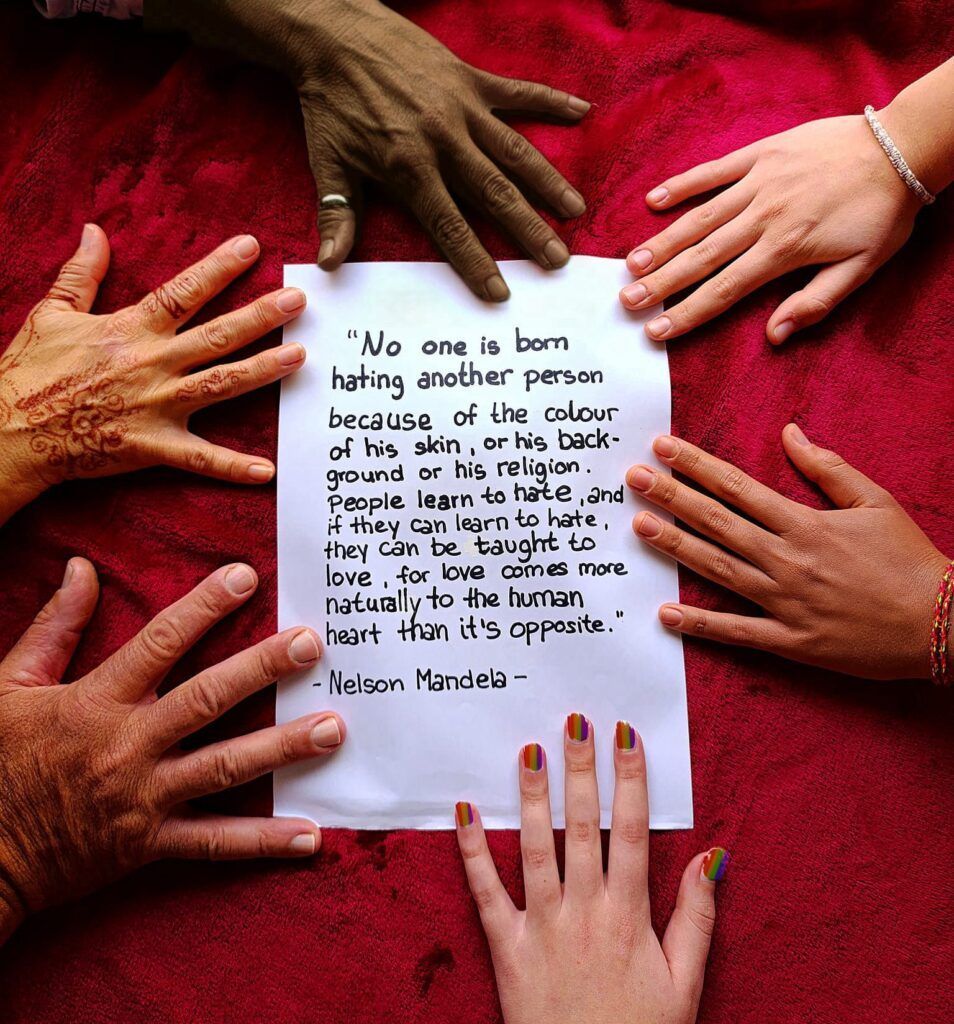 “No one is born
hating another person
because of the colour
of his skin, or his back-
ground or his religion.
People learn to hate, and
if they can learn to hate,
they can be taught to
love, for love comes more
naturally to the human
heart than it's opposite.”
- Nelson Mandela -